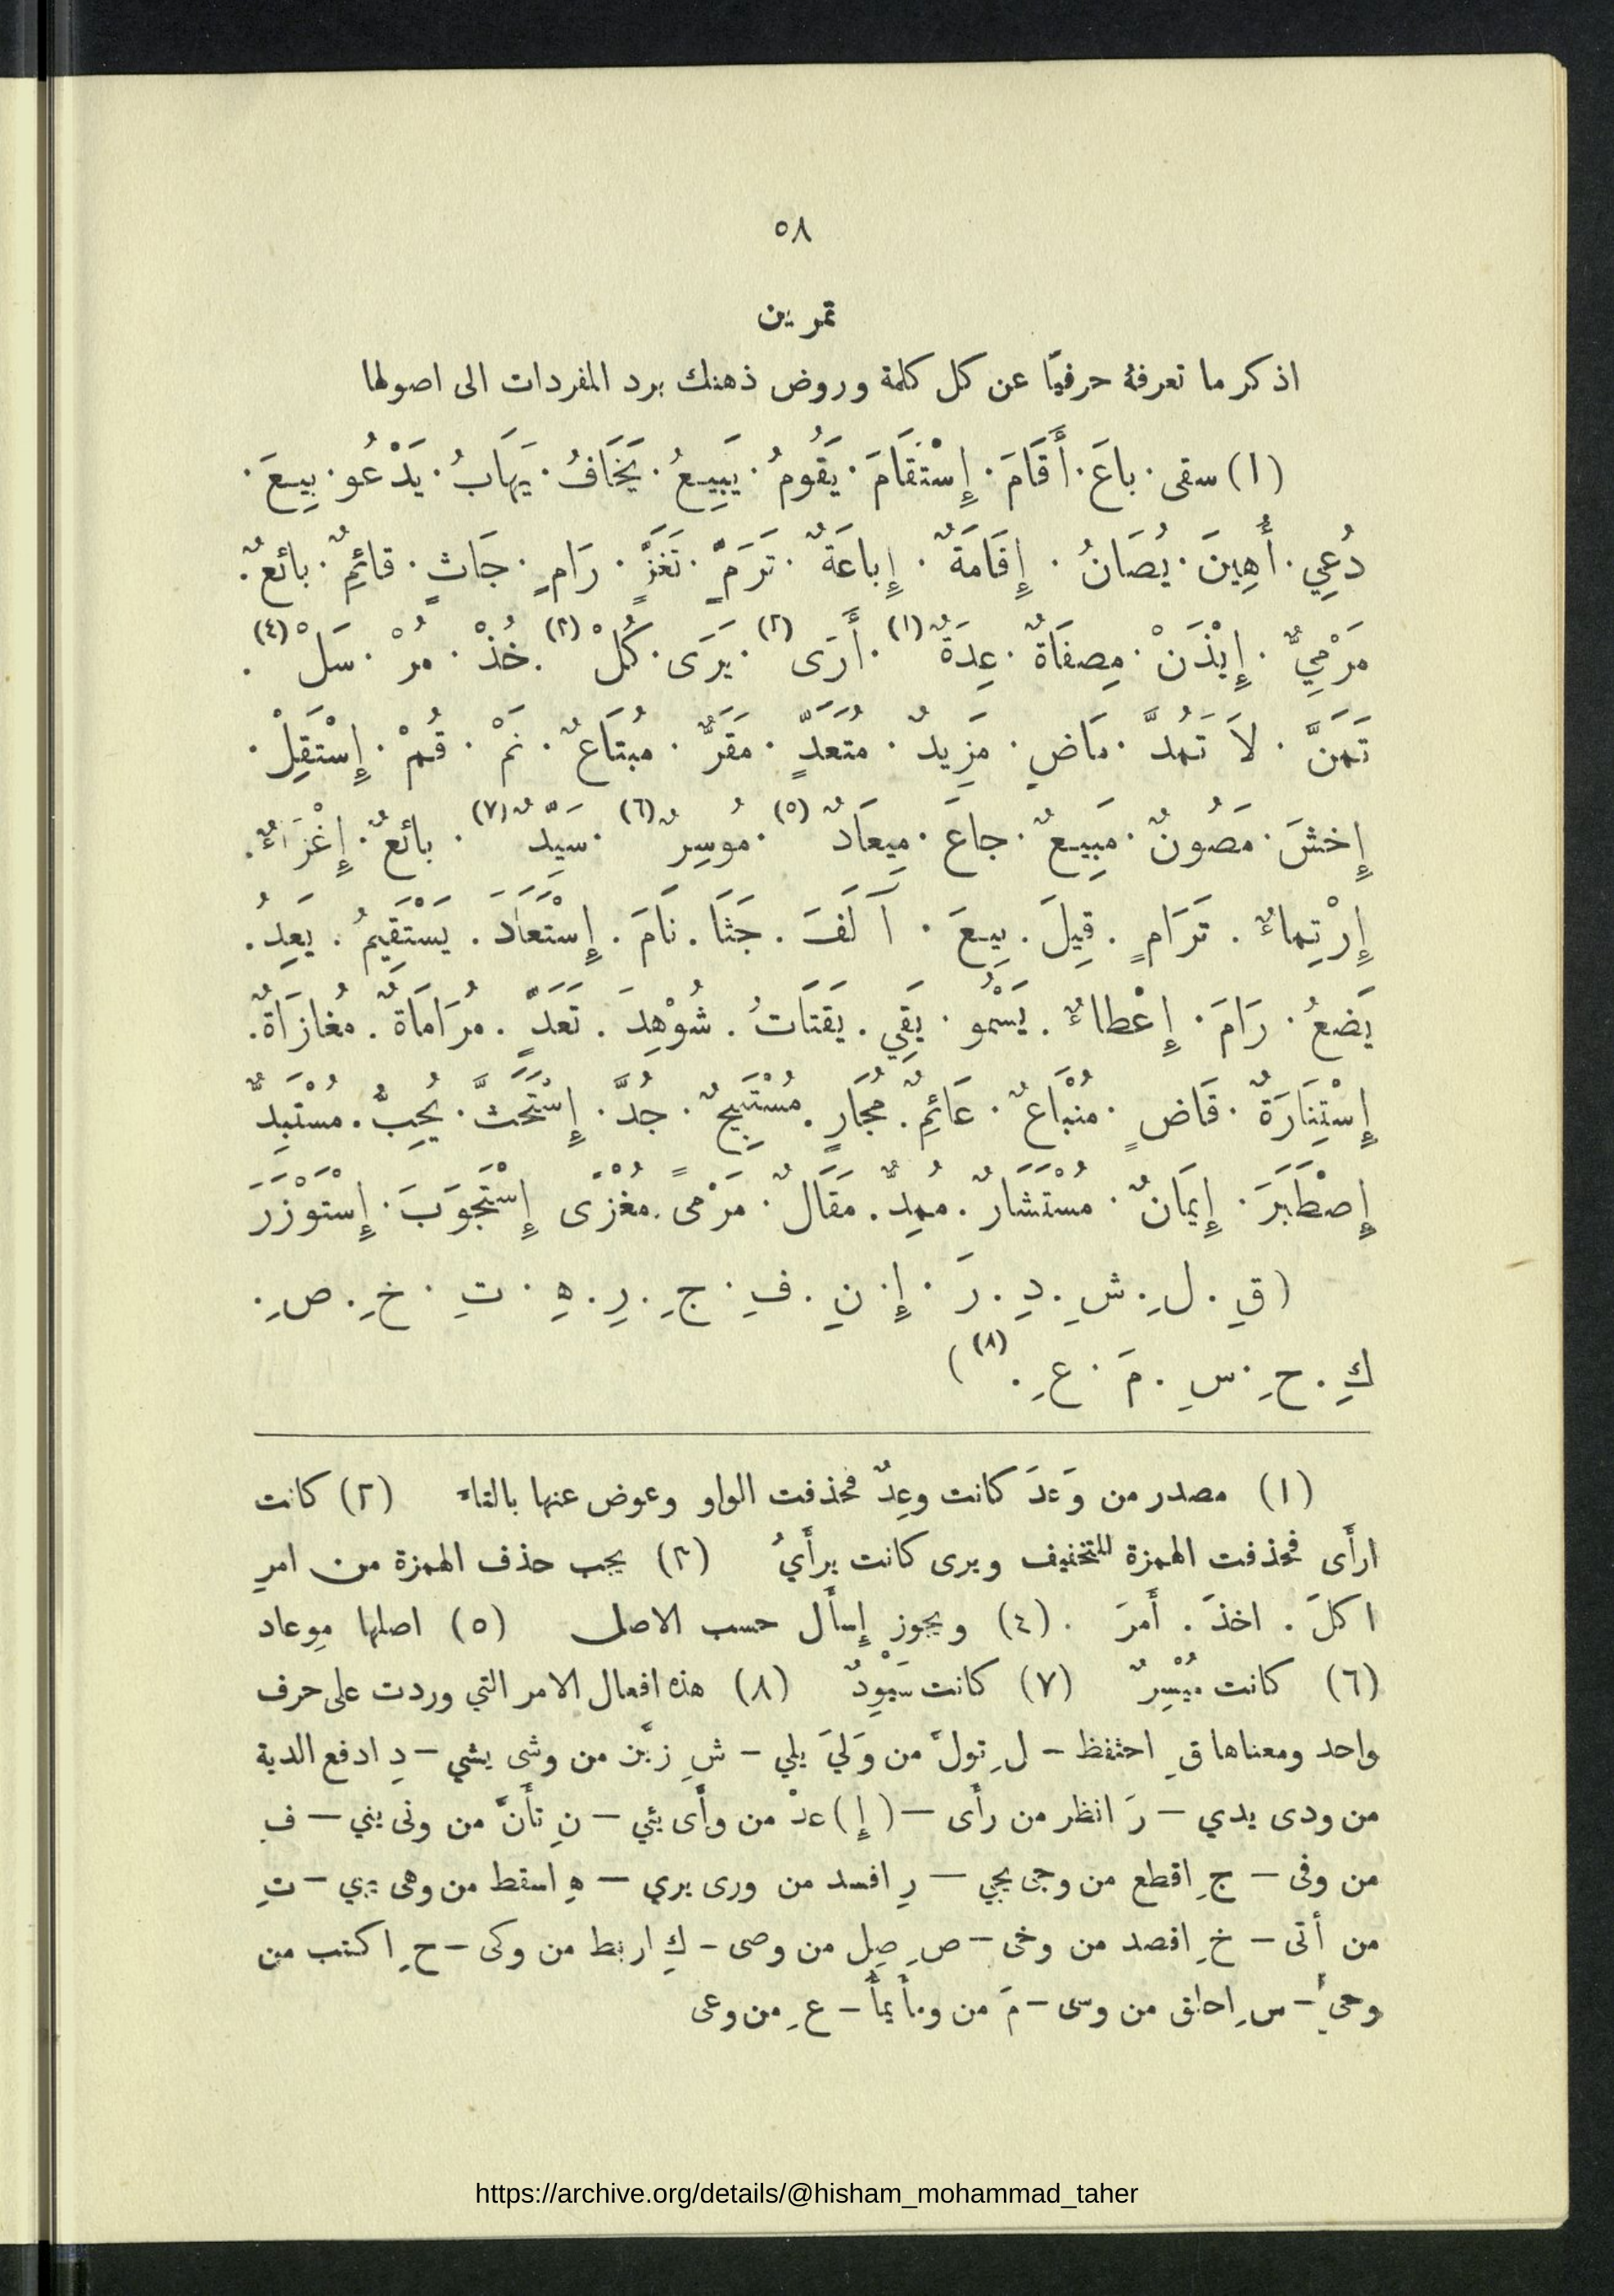 ٥٨
تمرين
اذكر ما تعرفهُ حرفيًا عن كل كلمة وروض ذهنك برد المفردات الى اصولها
(١) سقى · باعَ · أَقَامَ · إِسْتَقَامَ · يَقُومُ · يَبِيعُ · يَخَافُ · يَهَابُ · يَدْعُو · بِيعَ ·
دُعِي · أُهِينَ · يُصَانُ · إِقَامَةٌ · إِباعَةٌ · تَرَمٍّ · تَغَزٍّ · رَامٍ · جَاثٍ · قائِمٌ · بائعٌ ·
مَرْمِيٌّ · إِيْذَنْ · مِصفَاةٌ · عِدَةٌ (١) · أَرَى (٢) · يَرَى · كُلْ (٣) · خُذْ · مُرْ · سَلْ (٤) ·
تَمَنَّ · لاَ تَمُدَّ · مَاضٍ · مَزِيدٌ · مُتَعَدٍّ · مَقَرٌّ · مُبتَاعٌ · نَمْ · قُمْ · إِسْتَقِلْ ·
إِخشَ · مَصُونٌ · مَبِيعٌ · جاعَ · مِيعَادٌ (٥) · مُوسِرٌ (٦) · سَيِّدٌ (٧) · بائعٌ · إِغْزَاءٌ ·
إِرْتِماءٌ · تَرَامٍ · قِيلَ · بِيعَ · آلَفَ · جَثَا · نَامَ · إِسْتَعَادَ · يَسْتَقِيمُ · يَعِدُ ·
يَضعُ · رَامَ · إِعْطاءٌ · يَسْمُو · يَقِي · يَقتَاتُ · شُوْهِدَ · تَعَدٍّ · مُرَامَاةٌ · مُغازَاةٌ ·
إِسْتِنَارَةٌ · قَاضٍ · مُنبَاعٌ · عَائِمٌ · مُجَارٍ · مُسْتَبِيحٌ · جُدَّ · إِسْتَحَثَّ · يُحِبُّ · مُسْتَبِدٌّ
إِصْطَبَرَ · إِيمَانٌ · مُسْتَشَارٌ · مُمِدٌّ · مَقَالٌ · مَرْمىً · مُغْزًى إِسْتَجوَبَ · إِسْتَوْزَرَ
(قِ · لِ · شِ · دِ · رَ · إِ · نِ · فِ · جِ · رِ · هِ · تِ · خِ · صِ ·
كِ · حِ · سِ · مَ · عِ · (٨) )
(١) مصدر من وَعَدَ كانت وعِدٌ فحذفت الواو وعوض عنها بالتاء (٢) كانت
ارأَى فحذفت الهمزة للتخفيف ويرى كانت يرأَيُ (٣) يجب حذف الهمزة من امرِ
اكلَ . اخذَ . أَمرَ . (٤) ويجوز إِسأَل حسب الاصل (٥) اصلها مِوعاد
(٦) كانت مُيْسِرٌ (٧) كانت سَيْوِدٌ (٨) هذه افعال الامر التي وردت على حرف
واحد ومعناها قِ احتفظ – لِ تولَّ من وَليَ يلي – شِ زيّن من وشى يشي – دِ ادفع الدية
من ودى يدي – رَ انظر من رأَى – (إِ) عدْ من وأَى يئي – نِ تأَنَّ من ونى يني – فِ
من وفى – جِ اقطع من وجى يجي – رِ افسد من ورى يري – هِ اسقط من وهى يهي – تِ
من أتى – خِ اقصد من وخى – صِ صِل من وصى – كِ اربط من وكى – حِ اكتب من
وحى – سِ احلق من وسى – مَ من ومأَ يمأَ – عِ من وعى
https://archive.org/details/@hisham_mohammad_taher